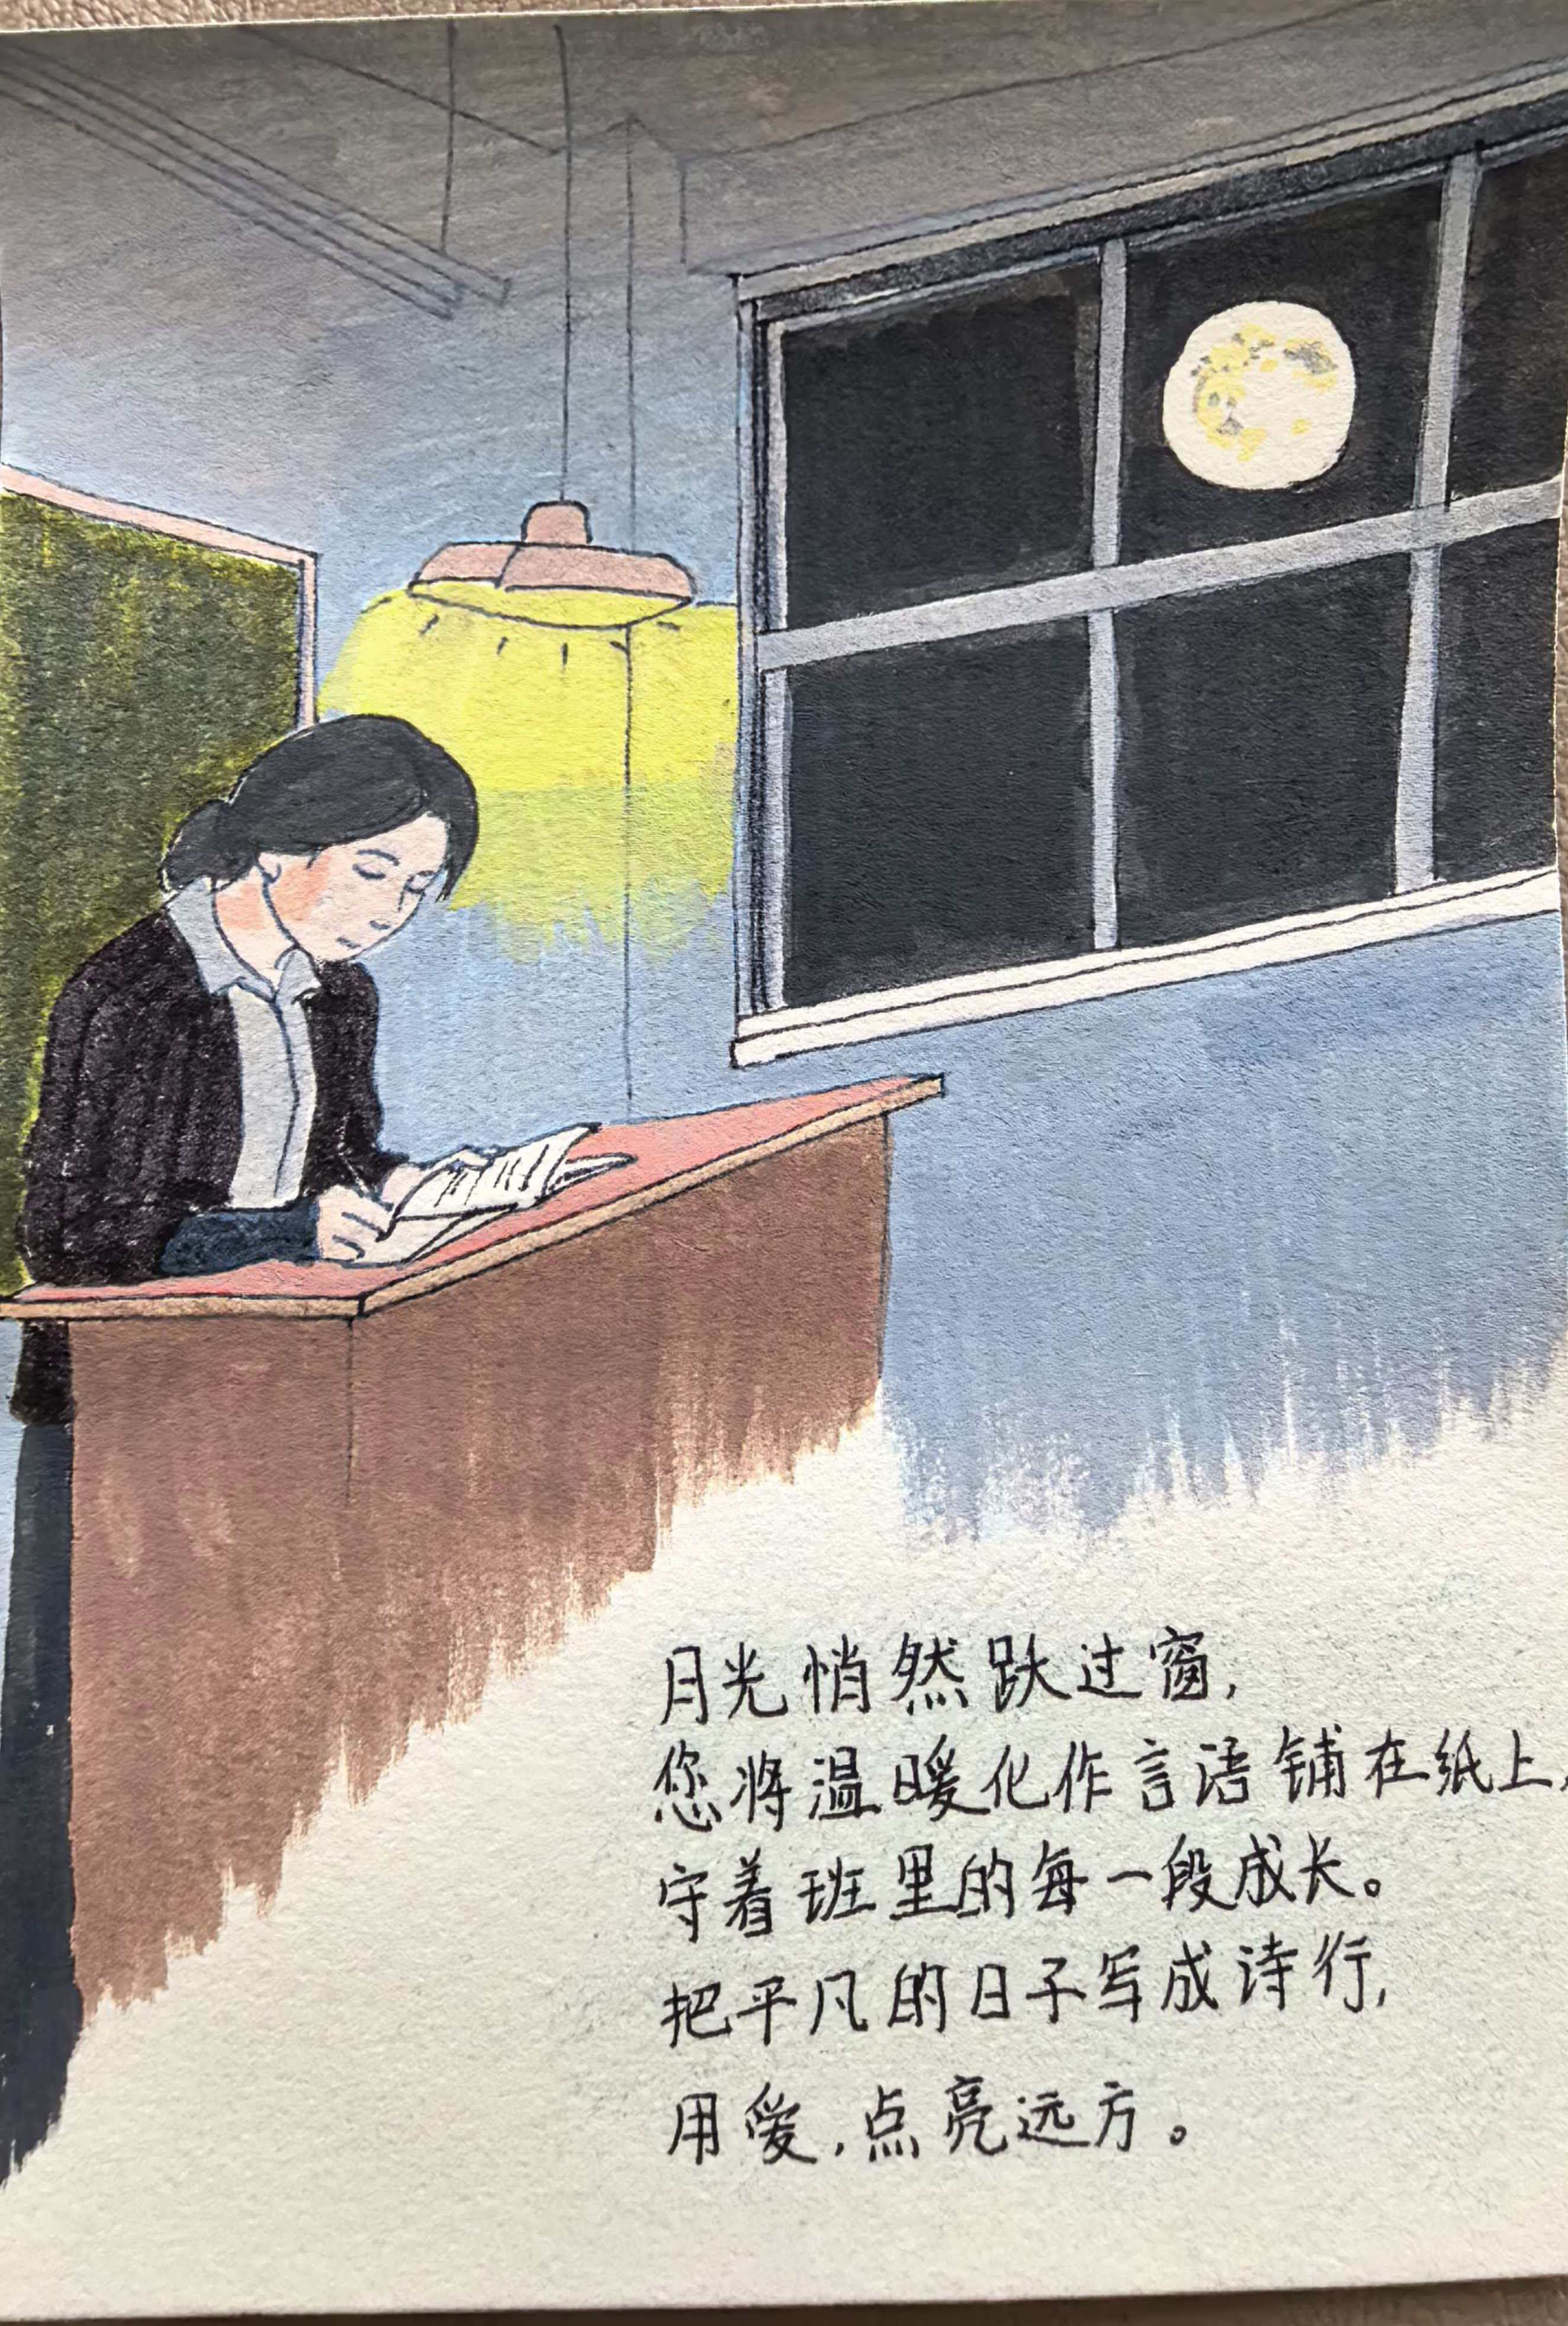 月光悄然跃过窗,
您将温暖化作言语铺在纸上,
守着班里的每一段成长。
把平凡的日子写成诗行,
用爱,点亮远方。